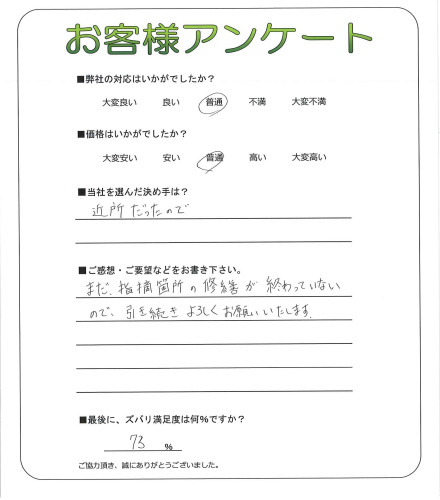 お客様アンケート
■弊社の対応はいかがでしたか?
大変良い 良い 普通 不満 大変不満
■価格はいかがでしたか?
大変安い 安い 普通 高い 大変高い
■当社を選んだ決め手は?
近所だったので
■ご感想・ご要望などをお書き下さい。
まだ、指摘箇所の修繕が終わっていない
ので、引き続きよろしくお願いいたします。
■最後に、ズバリ満足度は何%ですか?
73 %
ご協力頂き、誠にありがとうございました。